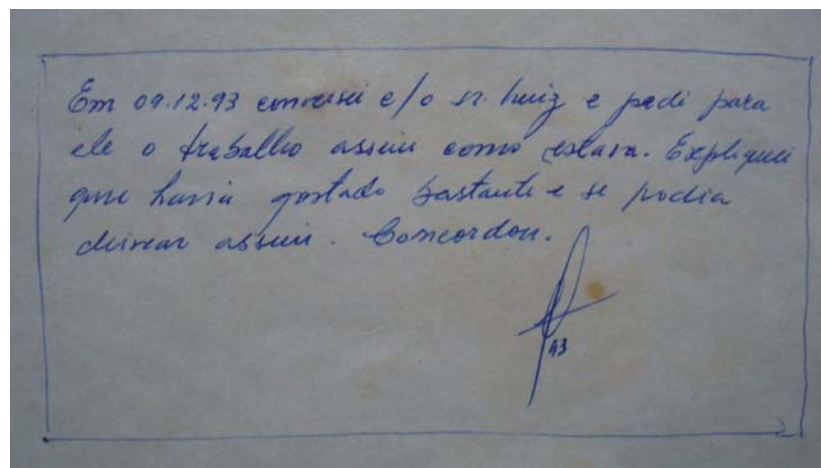 Em 09.12.93 conversei c/o sr. Luiz e pedi para
ele o trabalho assim como estava. Expliquei
que havia gostado bastante e se podia
deixar assim. Concordou.
93